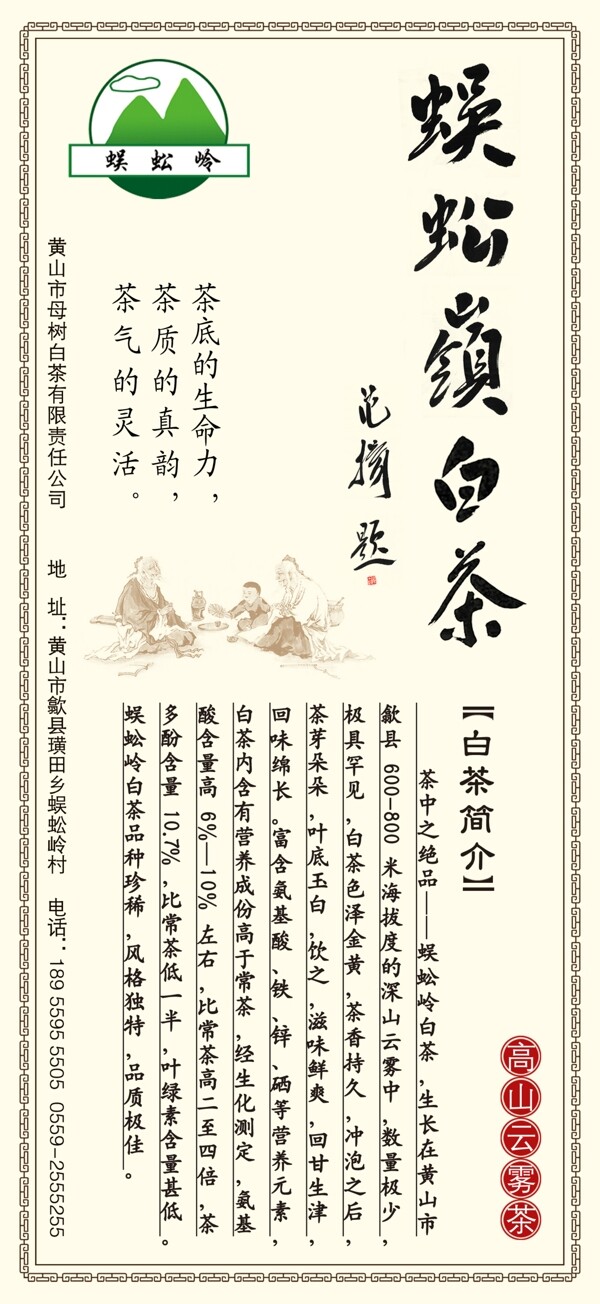 蜈蚣嶺白茶
范掎题
蜈蚣岭
茶底的生命力，
茶质的真韵，
茶气的灵活。
【白茶简介】
茶中之绝品——蜈蚣岭白茶，生长在黄山市
歙县 600-800 米海拔度的深山云雾中，数量极少，
极具罕见，白茶色泽金黄，茶香持久，冲泡之后，
茶芽朵朵，叶底玉白，饮之，滋味鲜爽，回甘生津，
回味绵长。富含氨基酸、铁、锌、硒等营养元素，
白茶内含有营养成份高于常茶，经生化测定，氨基
酸含量高 6%—10% 左右，比常茶高二至四倍，茶
多酚含量 10.7%，比常茶低一半，叶绿素含量甚低。
蜈蚣岭白茶品种珍稀，风格独特，品质极佳。
高山云雾茶
黄山市母树白茶有限责任公司 地 址：黄山市歙县璜田乡蜈蚣岭村 电话：189 5595 5505 0559-2555255